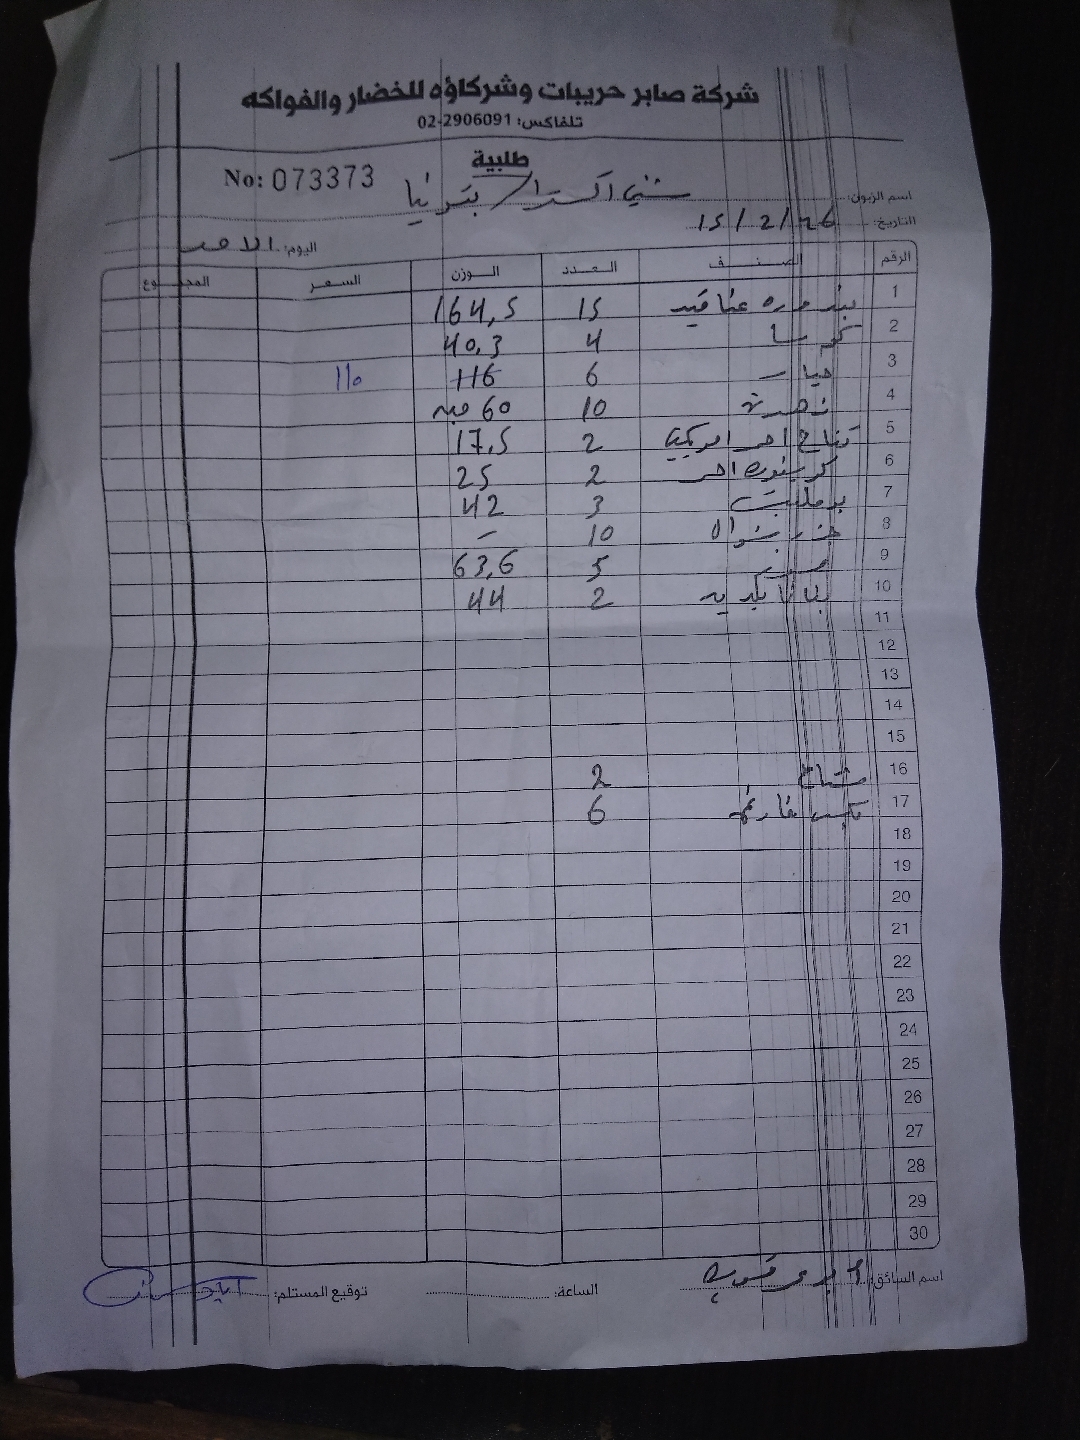 شركة صابر حريبات وشركاؤه للخضار والفواكه
تلفاكس: 02-2906091
طلبية
No: 073373
اسم الزبون: شني اكسترا / بتونيا
التاريخ: 15/2/26
اليوم: الاحد
الرقم الصنف العدد الوزن السعر المجموع
1 بندوره عناقيد 15 164,5
2 كوسا 4 40,3
3 خيار 6 116 110
4 زهره 10 60 حبه
5 تفاح احمر امريكي 2 17,5
6 احمر 2 25
7 3 42
8 10 -
9 5 63,6
10 2 44
11
12
13
14
15
16 2
17 فارغه 6
18
19
20
21
22
23
24
25
26
27
28
29
30
اسم السائق: الساعة: توقيع المستلم: